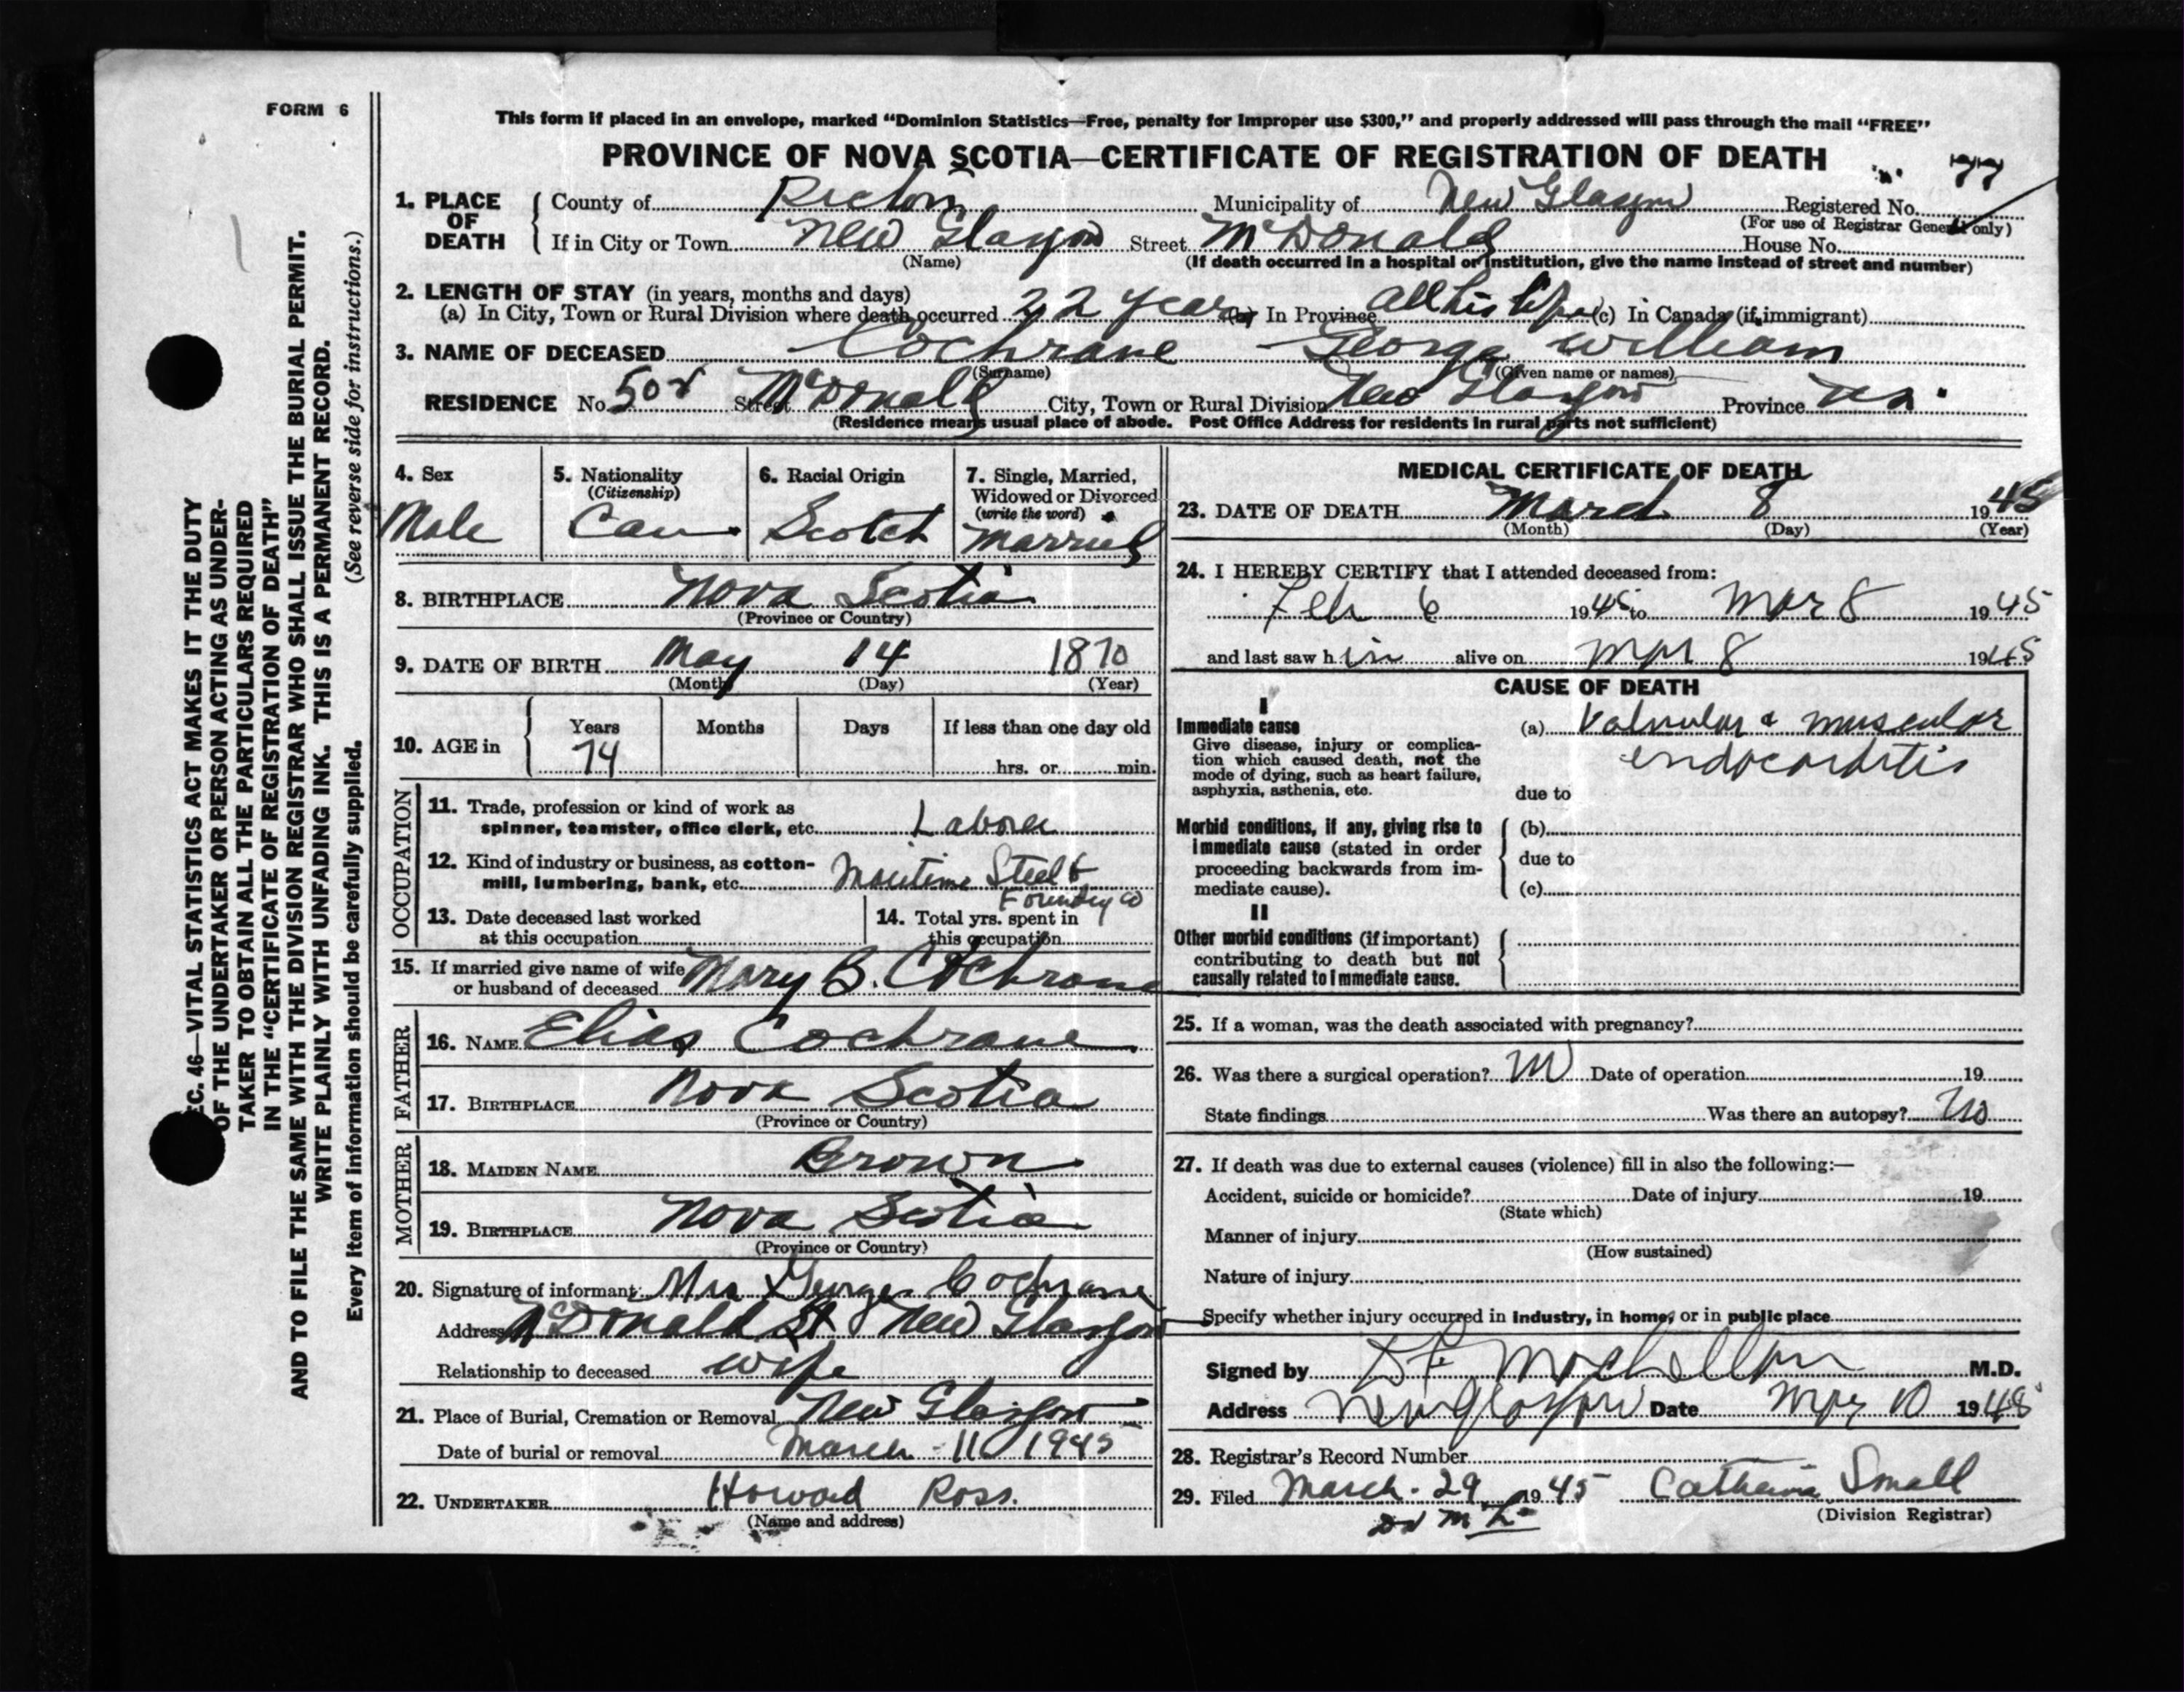 FORM 6
This form if placed in an envelope, marked “Dominion Statistics—Free, penalty for improper use $300,” and properly addressed will pass through the mail “FREE”
PROVINCE OF NOVA SCOTIA—CERTIFICATE OF REGISTRATION OF DEATH
77
1. PLACE OF DEATH
County of Pictou Municipality of New Glasgow Registered No.
(For use of Registrar General only)
If in City or Town New Glasgow Street McDonald House No.
(Name) (If death occurred in a hospital or institution, give the name instead of street and number)
2. LENGTH OF STAY (in years, months and days)
(a) In City, Town or Rural Division where death occurred 22 years (b) In Province all his life (c) In Canada (if immigrant)
3. NAME OF DECEASED Cochrane George William
(Surname) (Given name or names)
RESIDENCE No. Street McDonald City, Town or Rural Division New Glasgow Province N.S.
(Residence means usual place of abode. Post Office Address for residents in rural parts not sufficient)
4. Sex
Male
5. Nationality
(Citizenship)
Can
6. Racial Origin
Scotch
7. Single, Married,
Widowed or Divorced
(write the word)
Married
8. BIRTHPLACE Nova Scotia
(Province or Country)
9. DATE OF BIRTH May 14 1870
(Month) (Day) (Year)
10. AGE in
Years Months Days If less than one day old
74 hrs. or min.
OCCUPATION
11. Trade, profession or kind of work as
spinner, teamster, office clerk, etc. Laborer
12. Kind of industry or business, as cotton-
mill, lumbering, bank, etc. Maritime Steel &
Foundry Co
13. Date deceased last worked
at this occupation
14. Total yrs. spent in
this occupation
15. If married give name of wife
or husband of deceased Mary B. Cochrane
FATHER
16. NAME Elias Cochrane
17. BIRTHPLACE Nova Scotia
(Province or Country)
MOTHER
18. MAIDEN NAME Brown
19. BIRTHPLACE Nova Scotia
(Province or Country)
20. Signature of informant Mrs George Cochrane
Address McDonald St New Glasgow
Relationship to deceased wife
21. Place of Burial, Cremation or Removal New Glasgow
Date of burial or removal March 11 1945
22. UNDERTAKER Howard Ross.
(Name and address)
MEDICAL CERTIFICATE OF DEATH
23. DATE OF DEATH March 8 1945
(Month) (Day) (Year)
24. I HEREBY CERTIFY that I attended deceased from:
Feb 6 1945 to Mar 8 1945
and last saw him alive on Mar 8 1945
CAUSE OF DEATH
I
Immediate cause
Give disease, injury or complica-
tion which caused death, not the
mode of dying, such as heart failure,
asphyxia, asthenia, etc.
(a) Valvular & muscular
endocarditis
due to
Morbid conditions, if any, giving rise to
immediate cause (stated in order
proceeding backwards from im-
mediate cause).
(b)
due to
(c)
II
Other morbid conditions (if important)
contributing to death but not
causally related to immediate cause.
25. If a woman, was the death associated with pregnancy?
26. Was there a surgical operation? No Date of operation 19
State findings Was there an autopsy? No
27. If death was due to external causes (violence) fill in also the following:—
Accident, suicide or homicide? Date of injury 19
(State which)
Manner of injury
(How sustained)
Nature of injury
Specify whether injury occurred in industry, in home, or in public place
Signed by M.D.
Address New Glasgow Date Mar 10 1945
28. Registrar's Record Number
29. Filed March 29 1945 Catherine Small
(Division Registrar)
SEC. 46—VITAL STATISTICS ACT MAKES IT THE DUTY
OF THE UNDERTAKER OR PERSON ACTING AS UNDER-
TAKER TO OBTAIN ALL THE PARTICULARS REQUIRED
IN THE “CERTIFICATE OF REGISTRATION OF DEATH”
AND TO FILE THE SAME WITH THE DIVISION REGISTRAR WHO SHALL ISSUE THE BURIAL PERMIT.
WRITE PLAINLY WITH UNFADING INK. THIS IS A PERMANENT RECORD.
Every item of information should be carefully supplied. (See reverse side for instructions.)